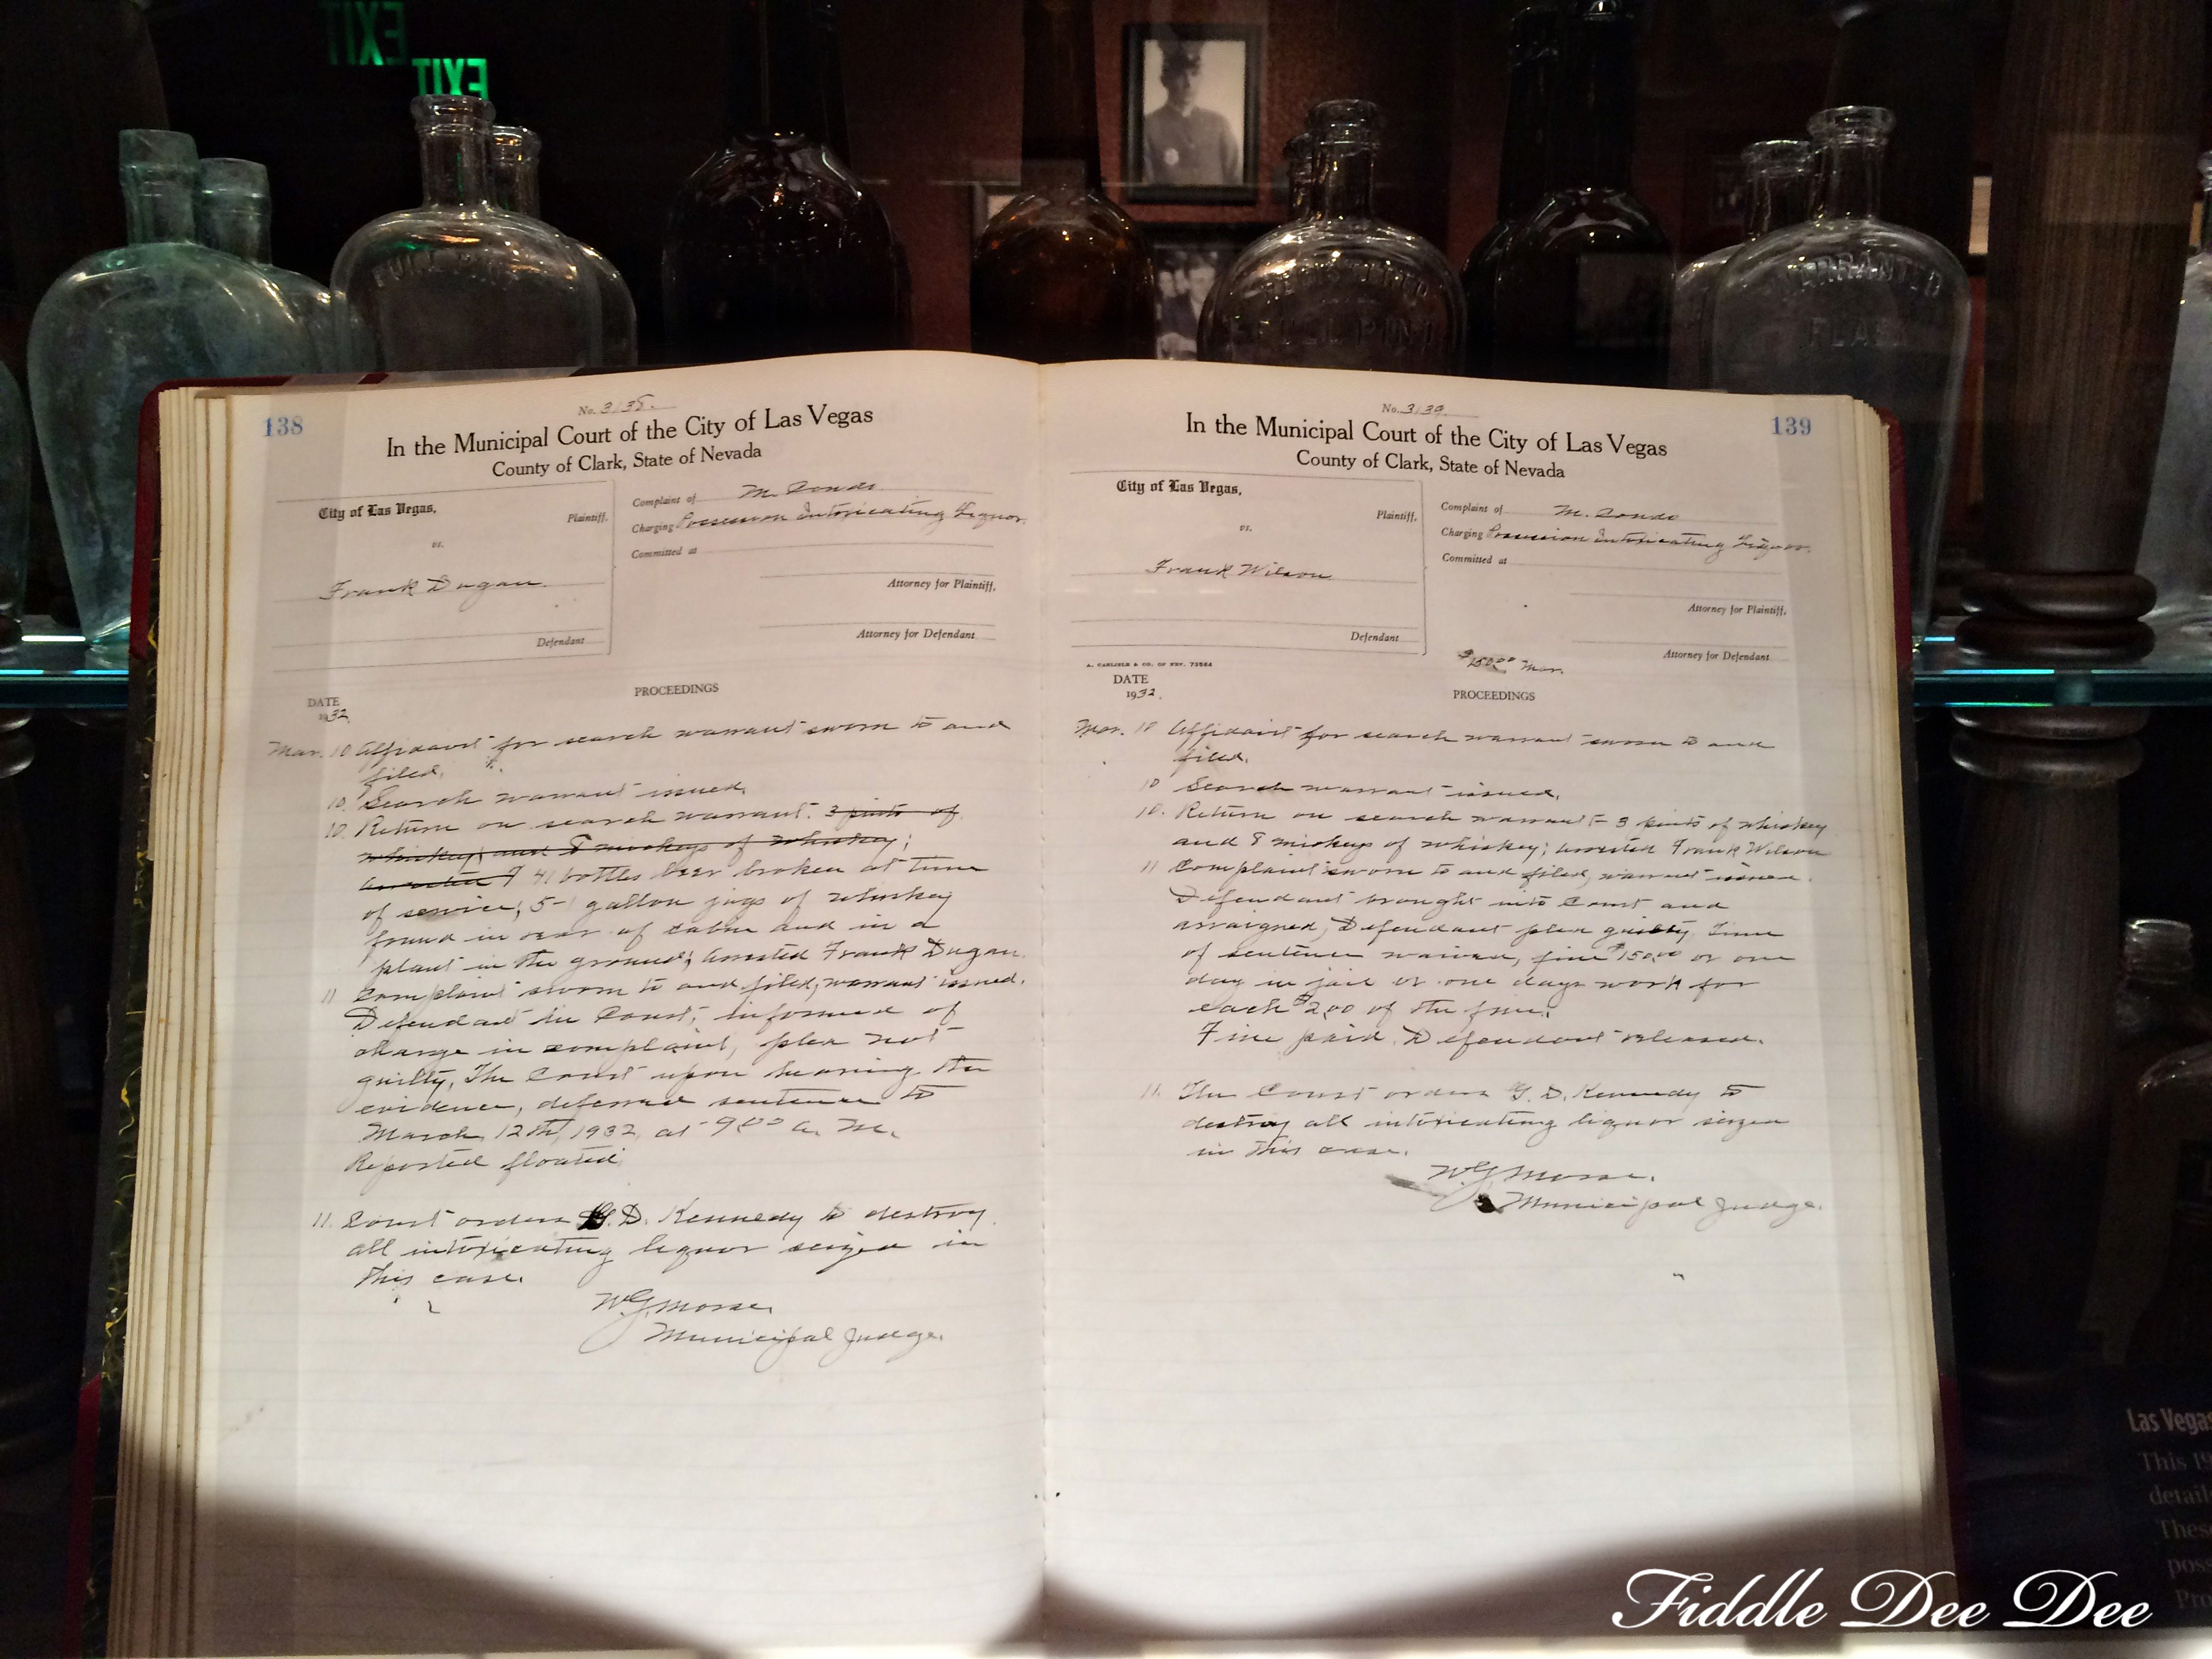 EXIT
EXIT
FULL
REGISTERED
FULL PINT
WARRANTED
FLASK
138
No. 3138.
In the Municipal Court of the City of Las Vegas
County of Clark, State of Nevada
City of Las Vegas,
Plaintiff,
vs.
Frank Dugan
Defendant
Complaint of M.
Charging Possession Intoxicating Liquor
Committed at
Attorney for Plaintiff,
Attorney for Defendant
DATE
1932
PROCEEDINGS
Mar. 10 Affidavit for search warrant sworn to and
filed.
10. Search warrant issued.
10. Return on search warrant. 3 pints of
whiskey and 8 mickeys of whiskey;
arrested F 41 bottles beer broken at time
of service; 5-1 gallon jugs of whiskey
found in rear of cabin and in a
plant in the ground; arrested Frank Dugan.
11 Complaint sworn to and filed, warrant issued.
Defendant in Court, informed of
charge in complaint, plea not
guilty. The Court upon hearing the
evidence, deferred sentence to
March 12th, 1932, at 9:00 A. M.
Reported floated
11. Court orders G. D. Kennedy to destroy
all intoxicating liquor seized in
this case.
W.G. Morse.
Municipal Judge.
139
No. 3139.
In the Municipal Court of the City of Las Vegas
County of Clark, State of Nevada
City of Las Vegas,
Plaintiff,
vs.
Frank Wilson
Defendant
Complaint of M.
Charging Possession Intoxicating Liquor.
Committed at
Attorney for Plaintiff,
Attorney for Defendant
$150.00 Mar.
A. CARLISLE & CO. OF NEV. 73564
DATE
1932.
PROCEEDINGS
Mar. 10 Affidavit for search warrant sworn to and
filed.
10 Search warrant issued.
10. Return on search warrant - 3 pints of whiskey
and 8 mickeys of whiskey; arrested Frank Wilson
11 Complaint sworn to and filed, warrant issued.
Defendant brought into Court and
arraigned, Defendant plea guilty, Time
of sentence waived, fine $150.00 or one
day in jail or one days work for
each $2.00 of the fine.
Fine paid. Defendant released.
11. The Court orders G. D. Kennedy to
destroy all intoxicating liquor seized
in this case.
W.G. Morse.
Municipal Judge.
Las Vegas
This 19
detail
These
poss
Pro
Fiddle Dee Dee